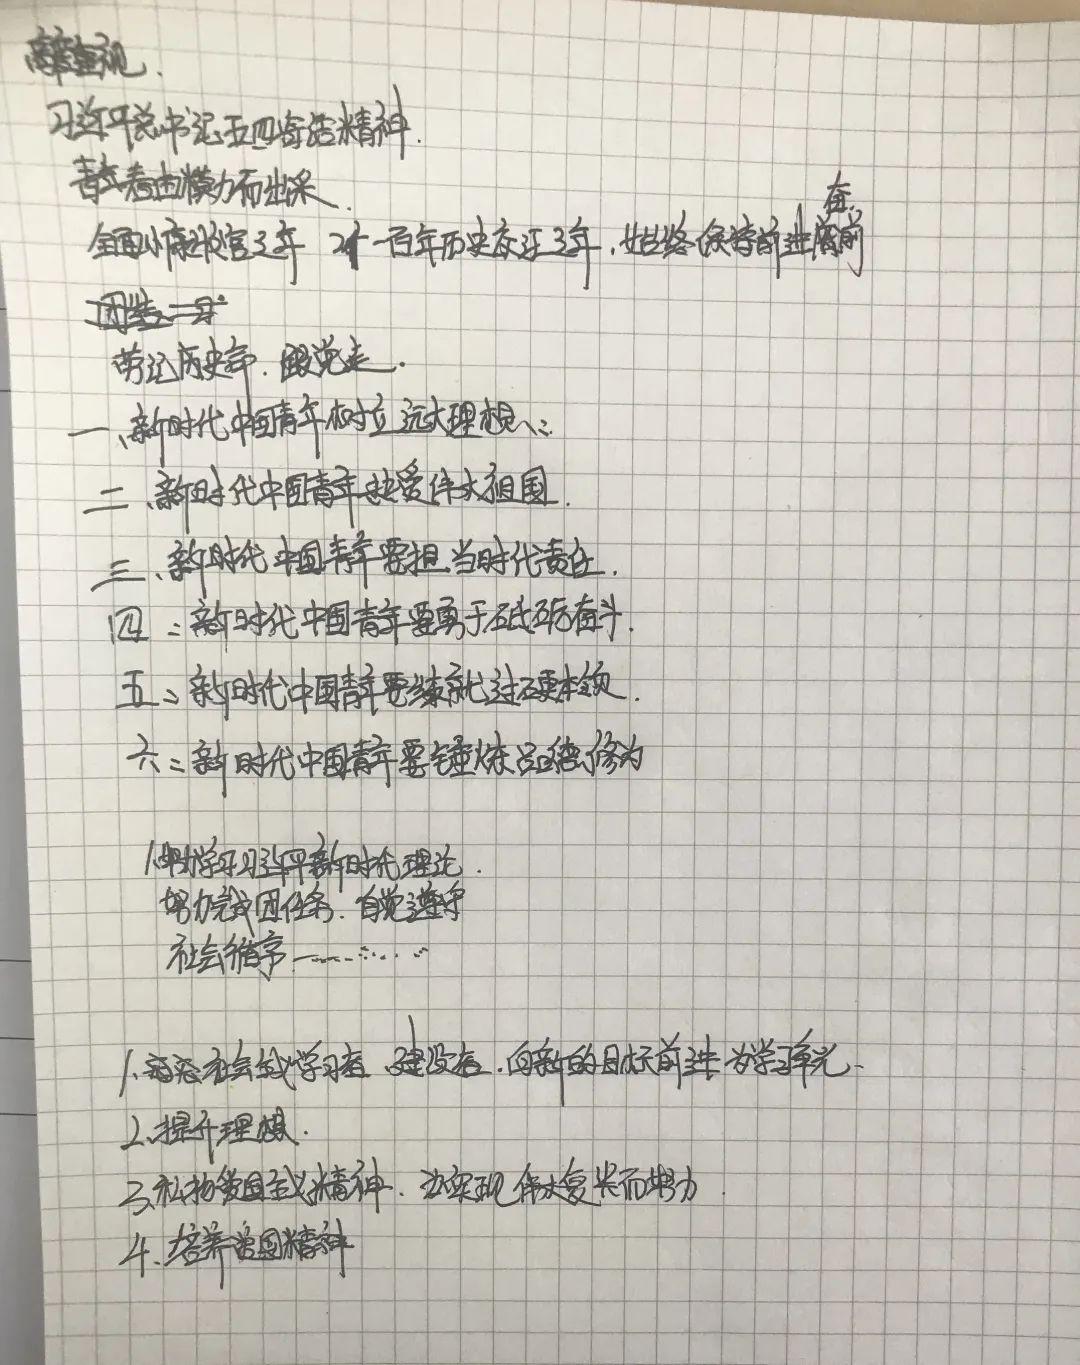 高度重视.
习近平总书记五四讲话精神.
青年者由模力而出采.
全面小康收官之年 一百年历史交汇之年,始终保持前进
在
牢记历史 跟党走.
一、新时代中国青年树立远大理想
二、新时代中国青年热爱伟大祖国.
三、新时代中国青年要担当时代责任.
四:新时代中国青年要勇于砥砺奋斗.
五:新时代中国青年要练就过硬本领.
六:新时代中国青年要锤炼品德修为
学习习近平新时代理论.
努力完成团任务.自觉遵守
社会循序
1. 社会 学习者 建设者.向新的目标前进 为学习
2、提升理想.
3、 爱国主义精神. 实现伟大复兴而努力.
4. 培养爱国精神